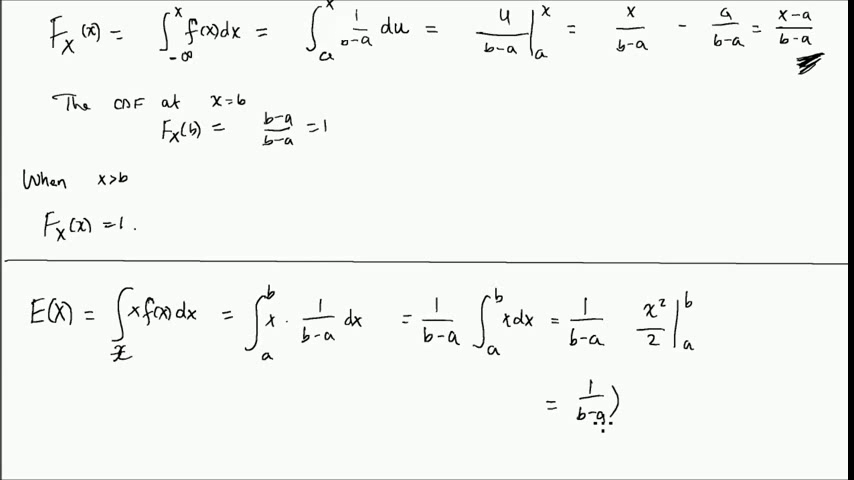 F_X(x) = ∫_{-∞}^{x} f(x)dx = ∫_a^x 1/(b-a) du = u/(b-a) |_a^x = x/(b-a) - a/(b-a) = (x-a)/(b-a)
The CDF at x=b
F_X(b) = (b-a)/(b-a) = 1
When x>b
F_X(x) = 1.
E(X) = ∫_x x f(x)dx = ∫_a^b x · 1/(b-a) dx = 1/(b-a) ∫_a^b x dx = 1/(b-a) x²/2 |_a^b
= 1/(b-a) )